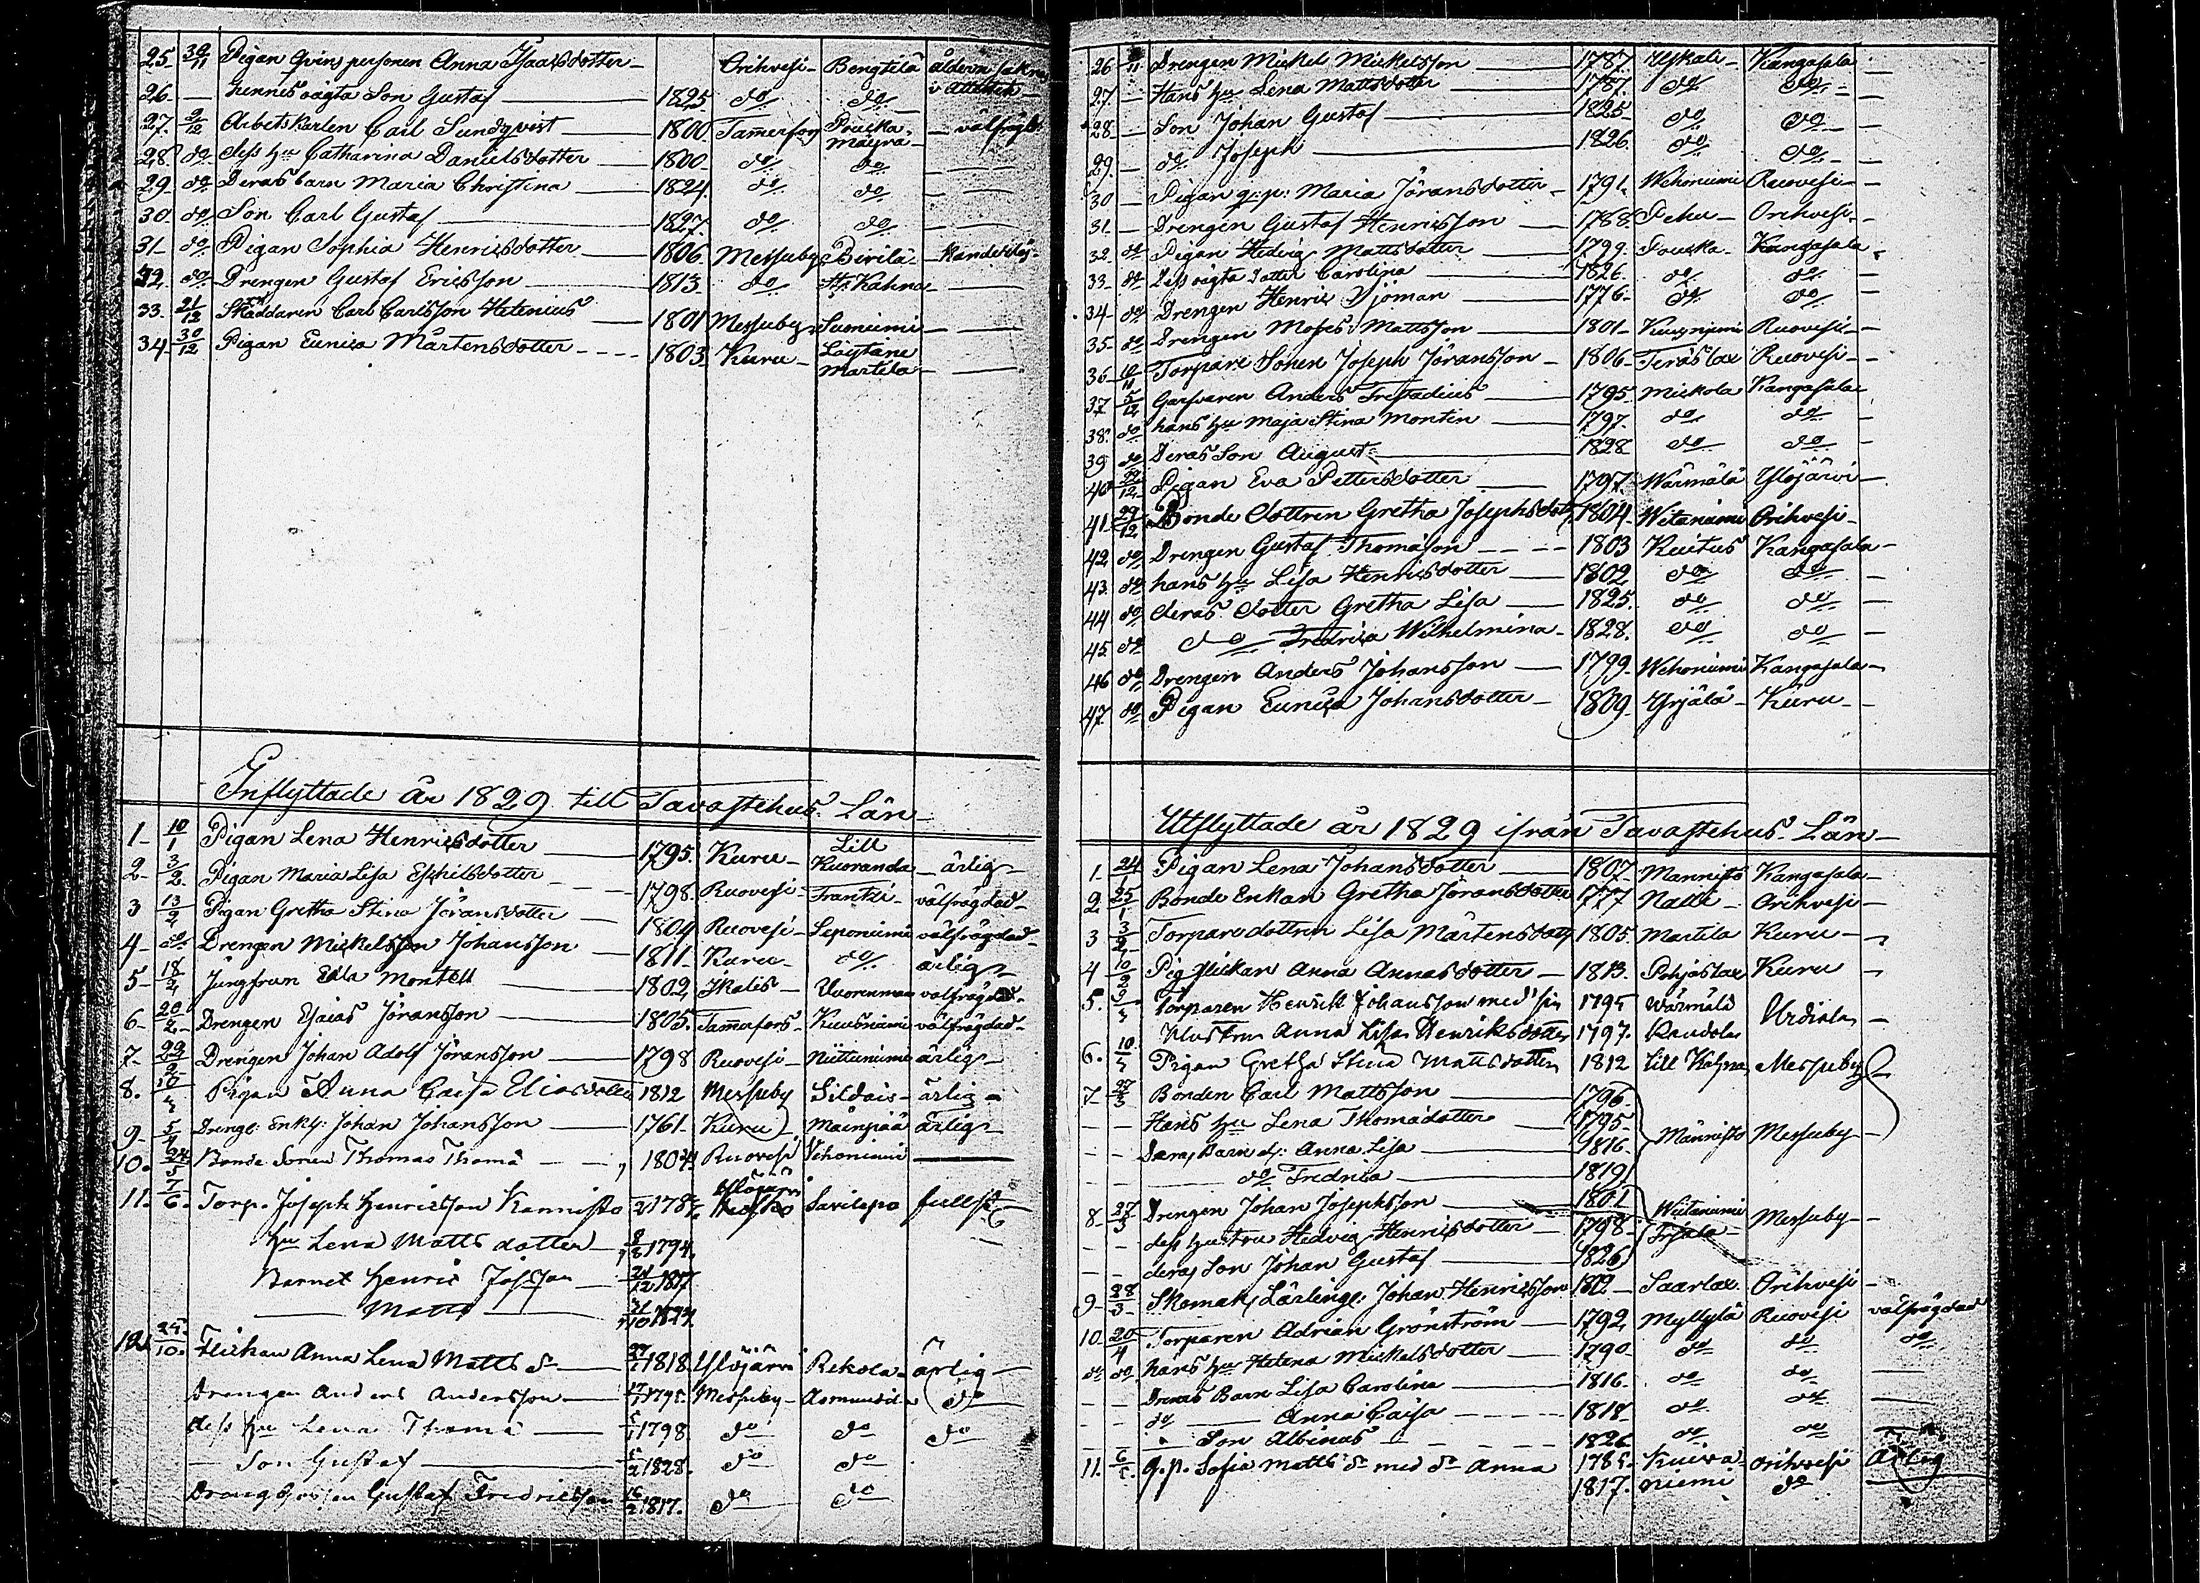 25. 30/11 Pigan Qvinspersonen Anna Isaacsdotter Orihvesi Bengtilä åldern sakn. i attesten
26. Hennes oägta Son Gustaf 1825 do do
27. 2/12 Arbetskarlen Carl Sundqvist 1800 Tamerfors välfrägd.
28. do dess hu Catharina Danielsdotter 1800 do do
29. do Deras barn Maria Christina 1824 do do
30. do Son Carl Gustaf 1827 do do
31. do Pigan Sophia Henricsdotter 1806 Messuby Pirilä
32. do Drengen Gustaf Ericsson 1813 do Kahna
33. 21/12 Skräddaren Carl Carlsson Hetenius 1801 Messuby Suoniemi
34. 30/12 Pigan Eunica Mårtensdotter 1803 Kuru Löytäne Martila
Inflyttade år 1829 till Tavastehus Län
1. 10/1 Pigan Lena Henricsdotter 1795 Kuru Lill Kuoranda ärlig
2. 3/2 Pigan Maria Lisa Eskilsdotter 1798 Ruovesi Frantzi välfrägdad
3 13/2 Pigan Gretha Stina Jöransdotter 1804 Ruovesi Leponiemi välfrägdad
4. do Drengen Mickelsson Johansson 1811 Kuru do ärlig
5. 18/2 Jungfrun Edla Montell 1802 Ikalis Vuorenmaa välfrägdad
6. 20/2 Drengen Esaias Jöransson 1805 Tammerfors Kuusniemi välfrägdad
7. 22/2 Drengen Johan Adolf Jöransson 1798 Ruovesi Niittuniemi ärlig
8. 10/3 Pigan Anna Caisa Eliasdotter 1812 Messuby Sildais ärlig
9. 5/4 Drenge Enkl: Johan Johansson 1761 Kuru Mainpää ärlig
10. 24/5 Bonde Sonen Thomas Thomä 1804 Ruovesi Vehoniemi
11. 7/6 Torp. Joseph Henricsson Kannisto 1787 Ylöjärvi Savilepo fullst
hu Lena Matts dotter 1794
Barnet Henric Josson 1817
Matts 1824
12. 25/10 Flickan Anna Lena Matts dr 1818 Ylöjärvi Rekola ärlig
Drengen Anders Andersson 1795 Messuby Aomundila do
dess hu Lena Thomä 1798 do do do
Son Gustaf 1828 do do
Dreng Gossen Gustaf Fredricsson 1817 do do
26 Drengen Mickel Mickelsson 1787 Uskali Kangasala
27. Hans hu Lena Mattsdotter 1787 do do
28 Son Johan Gustaf 1825 do do
29. do Joseph 1826 do do
30 Pigan q:p: Maria Jöransdotter 1791 Wehoniemi Ruovesi
31. Drengen Gustaf Henricsson 1788 Pehu Orihvesi
32. do Pigan Hedvig Mattsdotter 1799 Kangasala
33. do Dess oägta dotter Carolina 1826 do do
34. do Drengen Henric Sjöman 1776 do do
35. do Drengen Moses Mattsson 1801 Ruovesi
36. 10/11 Torpare Sonen Joseph Jöransson 1806 Teräslax Ruovesi
37 5/12 Garfvaren Anders Frestadius 1795 Mickola Kangasala
38. do hans hu Maja Stina Montin 1797 do do
39 do Deras Son August 1828 do do
40 Pigan Eva Pettersdotter 1797 Wärmälä Ylöjärvi
41. 29/12 Bonde dottren Gretha Josephsdott 1804 Witaniemi Orihvesi
42 do Drengen Gustaf Thomasson 1803 Kuitus Kangasala
43. do hans hu Lisa Henricsdotter 1802 do do
44 do deras dotter Gretha Lisa 1825 do do
45 do do Fredrica Wilhelmina 1828 do do
46 do Drengen Anders Johansson 1799 Wehoniemi Kangasala
47. do Pigan Eunica Johansdotter 1809 Yrjälä Kuru
Utflyttade år 1829 ifrån Tavastehus Län
1. 24/1 Pigan Lena Johansdotter 1807 Mannisto Kangasala
2 25/1 Bonde Enkan Gretha Jöransdotter 1777 Nalli Orihvesi
3 3/2 Torparedottren Lisa Mårtensdott 1805 Martila Kuru
4 10/2 Pigflickan Anna Annasdotter 1813 Pohjaslax Kuru
5. 9/3 Torparen Henrik Johansson med sin 1795 Wärmälä Urdiala
Hustru Anna Lisa Henriksdotter 1797 Kaudola
6. 10/3 Pigan Gretha Stina Mattsdotter 1812 Lill Kahna Messuby
7 27/3 Bonden Carl Mattsson 1796
Hans hu Lena Thomädotter 1795 Männisto Messuby
Deras Barn d: Anna Lisa 1816
do Fredrica 1819
8 27/3 Drengen Johan Josephsson 1801 Witaniemi
dess hustru Hedvig Henricsdotter 1798 Messuby
deras Son Johan Gustaf 1826
9 28/3 Skomak. Lärlinge Johan Henricsson 1812 Saarlax Orihvesi
10. 20/4 Torparen Adrian Grönström 1792 Myllylä Ruovesi välfrägdad
do do hans hu Helena Mickelsdotter 1790 do do do
Deras Barn Lisa Carolina 1816 do do
do Anna Caisa 1818 do do
Son Albinus 1826 do do
11. 6/5 q.p. Sofia Matts dr med dr Anna 1785 Kuivaniemi Orihvesi Ärlig
1817 do